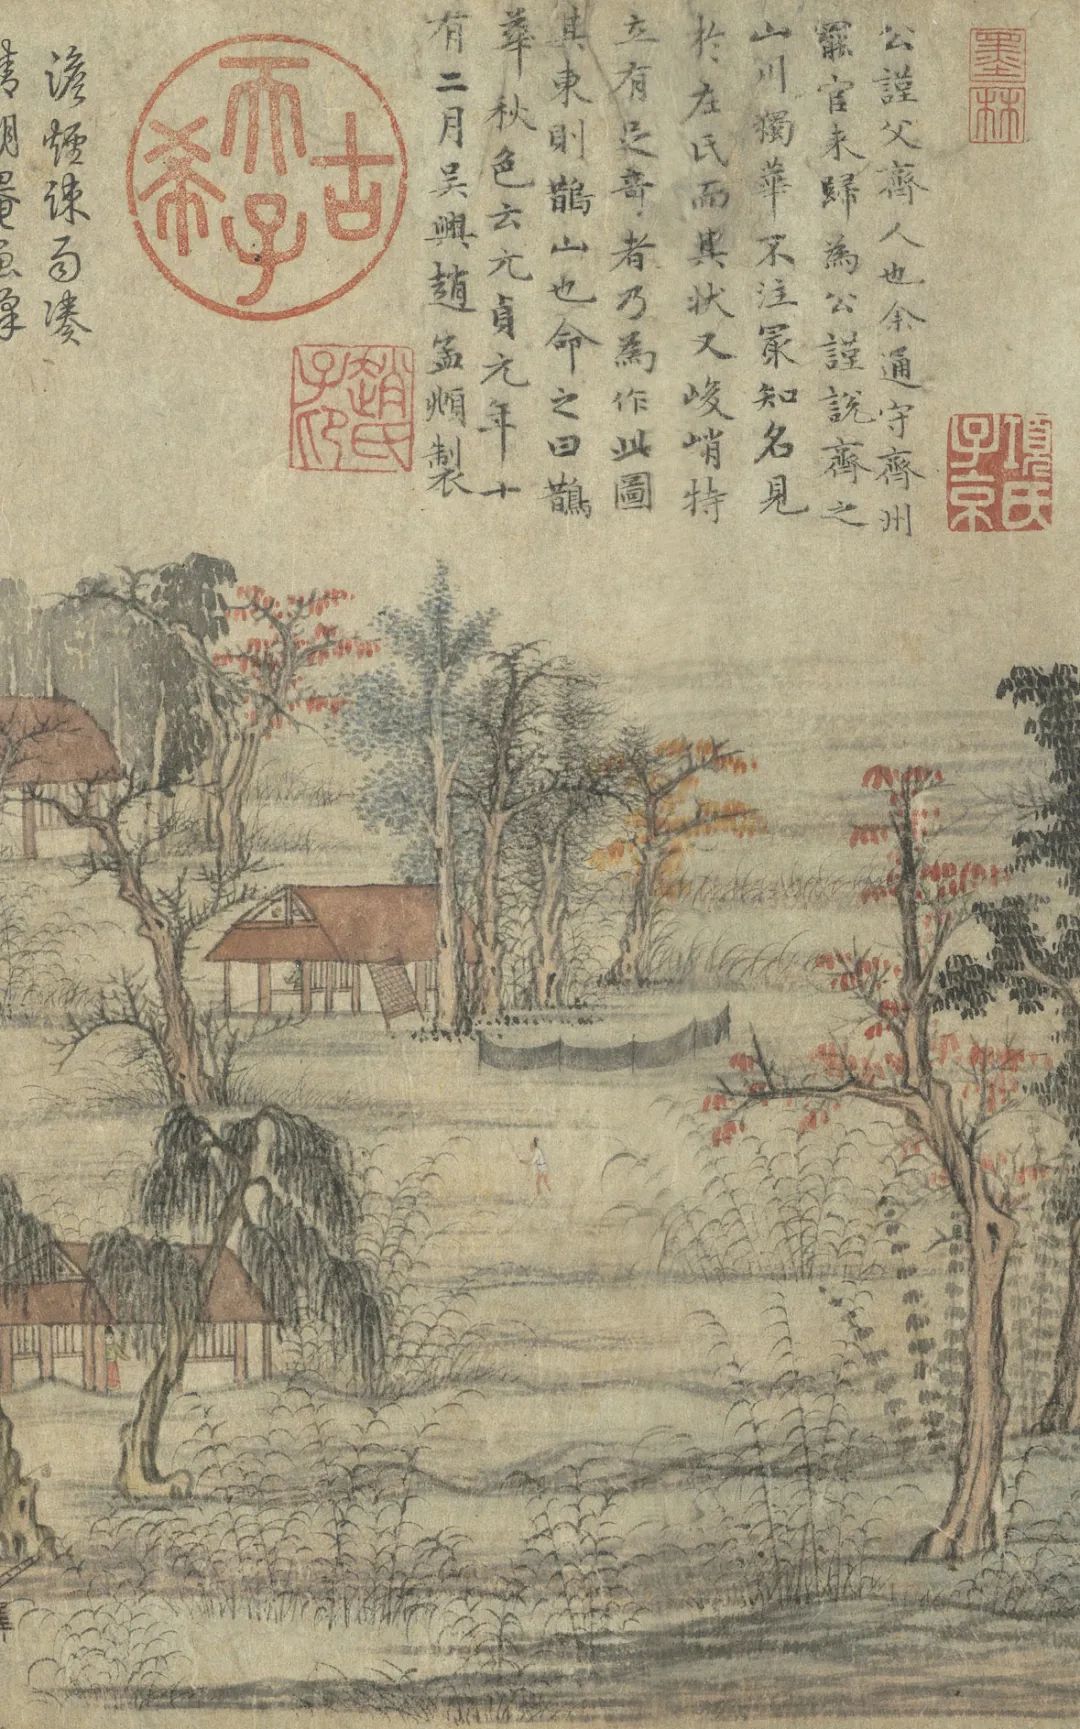 墨林
項氏子京
公謹父齊人也余通守齊州
罷官来歸為公謹説齊之
山川獨華不注㝡知名見
於左氏而其状又峻峭特
立有足奇者乃為作此圖
其東則鵲山也命之曰鵲
華秋色云元貞元年十
有二月吴興趙孟頫製
趙氏子昂
古希天子
澹煙疎雨湊